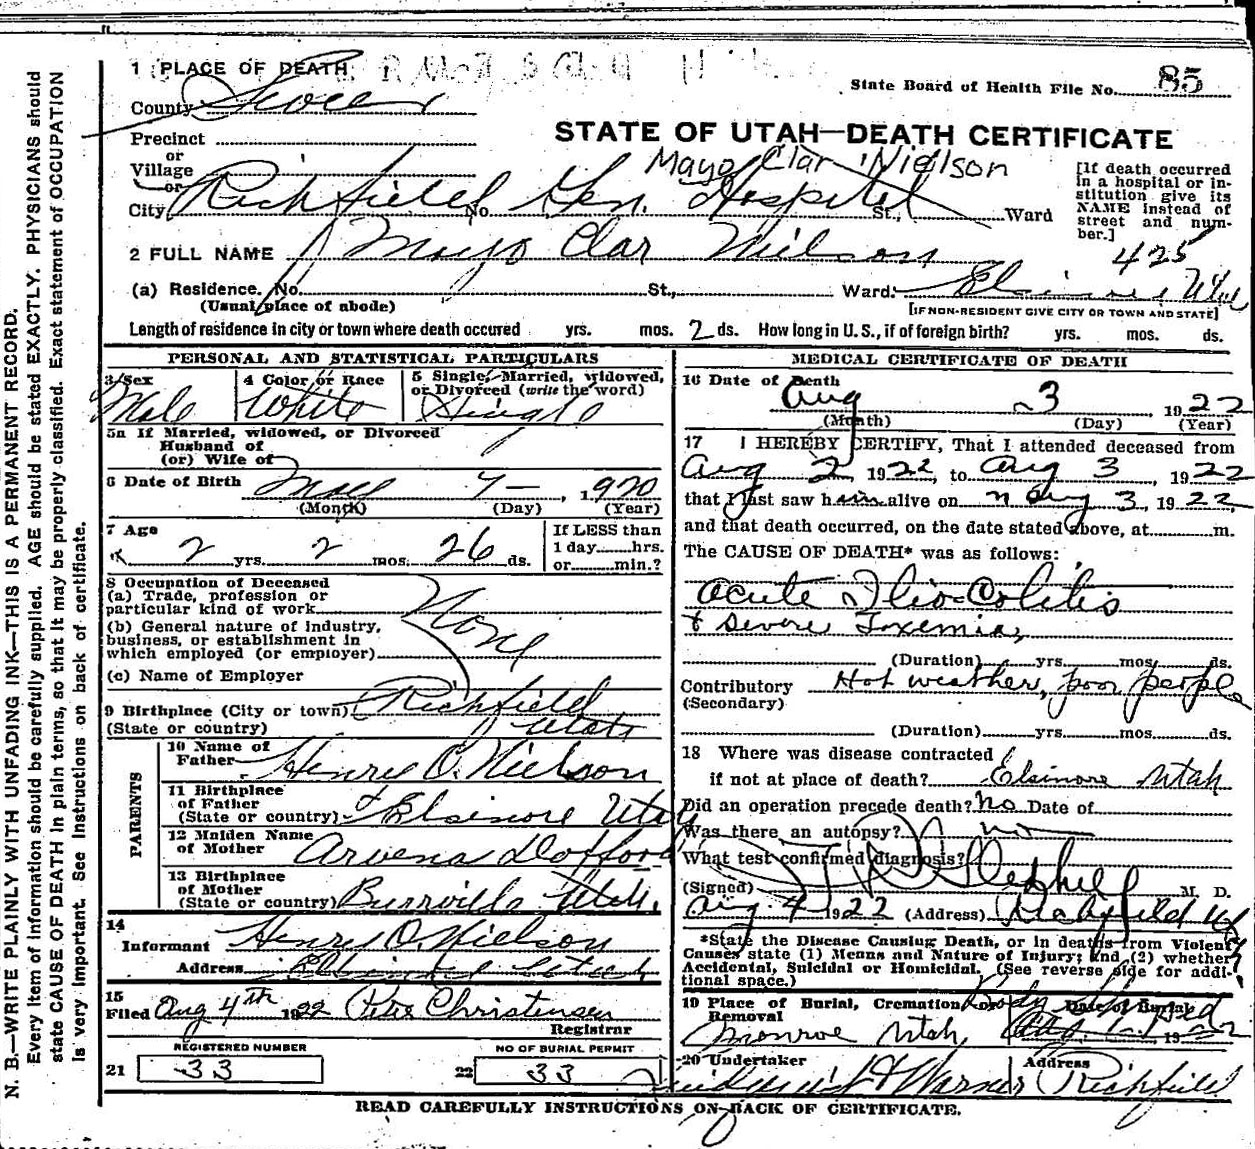 1 PLACE OF DEATH
State Board of Health File No. 85
County Sevier
STATE OF UTAH—DEATH CERTIFICATE
Precinct
or
Village
or
Mayo Clar Nielson
City Richfield No. Gen. Hospital St., Ward
[If death occurred in a hospital or institution give its NAME instead of street and number.]
425
2 FULL NAME Mayo Clar Nielson
(a) Residence. No. St., Ward. Elsinore Utah
(Usual place of abode)
[IF NON-RESIDENT GIVE CITY OR TOWN AND STATE]
Length of residence in city or town where death occured yrs. mos. 2 ds. How long in U. S., if of foreign birth? yrs. mos. ds.
PERSONAL AND STATISTICAL PARTICULARS
3 Sex Male
4 Color or Race White
5 Single, Married, widowed, or Divorced (write the word) Single
5a If Married, widowed, or Divorced
Husband of
(or) Wife of
6 Date of Birth May 7 — , 1920
(Month) (Day) (Year)
7 Age 2 yrs. 2 mos. 26 ds.
If LESS than
1 day hrs.
or min.?
8 Occupation of Deceased
(a) Trade, profession or
particular kind of work None
(b) General nature of industry,
business, or establishment in
which employed (or employer)
(c) Name of Employer
9 Birthplace (City or town) Richfield
(State or country) Utah
PARENTS
10 Name of
Father Henry O. Nielson
11 Birthplace
of Father
(State or country) Elsinore Utah
12 Maiden Name
of Mother Arvena
13 Birthplace
of Mother
(State or country) Burrville Utah.
14
Informant Henry O. Nielson
Address Elsinore Utah
15
Filed Aug 4th 1922 Pete Christensen
Registrar
REGISTERED NUMBER
21 33
NO OF BURIAL PERMIT
22 33
MEDICAL CERTIFICATE OF DEATH
16 Date of Death
Aug 3 1922
(Month) (Day) (Year)
17 I HEREBY CERTIFY, That I attended deceased from
Aug 2, 1922, to Aug 3, 1922
that I last saw him alive on Aug 3, 1922
and that death occurred, on the date stated above, at m.
The CAUSE OF DEATH* was as follows:
Acute Ilio-Colitis
& Severe Toxemia,
(Duration) yrs. mos. ds.
Contributory Hot weather, poor people
(Secondary)
(Duration) yrs. mos. ds.
18 Where was disease contracted
if not at place of death? Elsinore Utah
Did an operation precede death? No Date of
Was there an autopsy? no
What test confirmed diagnosis?
(Signed) M. D.
Aug 4 1922 (Address) Richfield Ut
*State the Disease Causing Death, or in deaths from Violent
Causes state (1) Menns and Nature of Injury; and (2) whether
Accidental, Suicidal or Homicidal. (See reverse side for addi-
tional space.)
19 Place of Burial, Cremation or Removal Body Shipped
Date of Burial
Monroe Utah, 1922
20 Undertaker
Address
& Warner Richfield
READ CAREFULLY INSTRUCTIONS ON BACK OF CERTIFICATE.
N. B.—WRITE PLAINLY WITH UNFADING INK—THIS IS A PERMANENT RECORD.
Every item of information should be carefully supplied. AGE should be stated EXACTLY. PHYSICIANS should
state CAUSE OF DEATH in plain terms, so that it may be properly classified. Exact statement of OCCUPATION
is very important. See instructions on back of certificate.